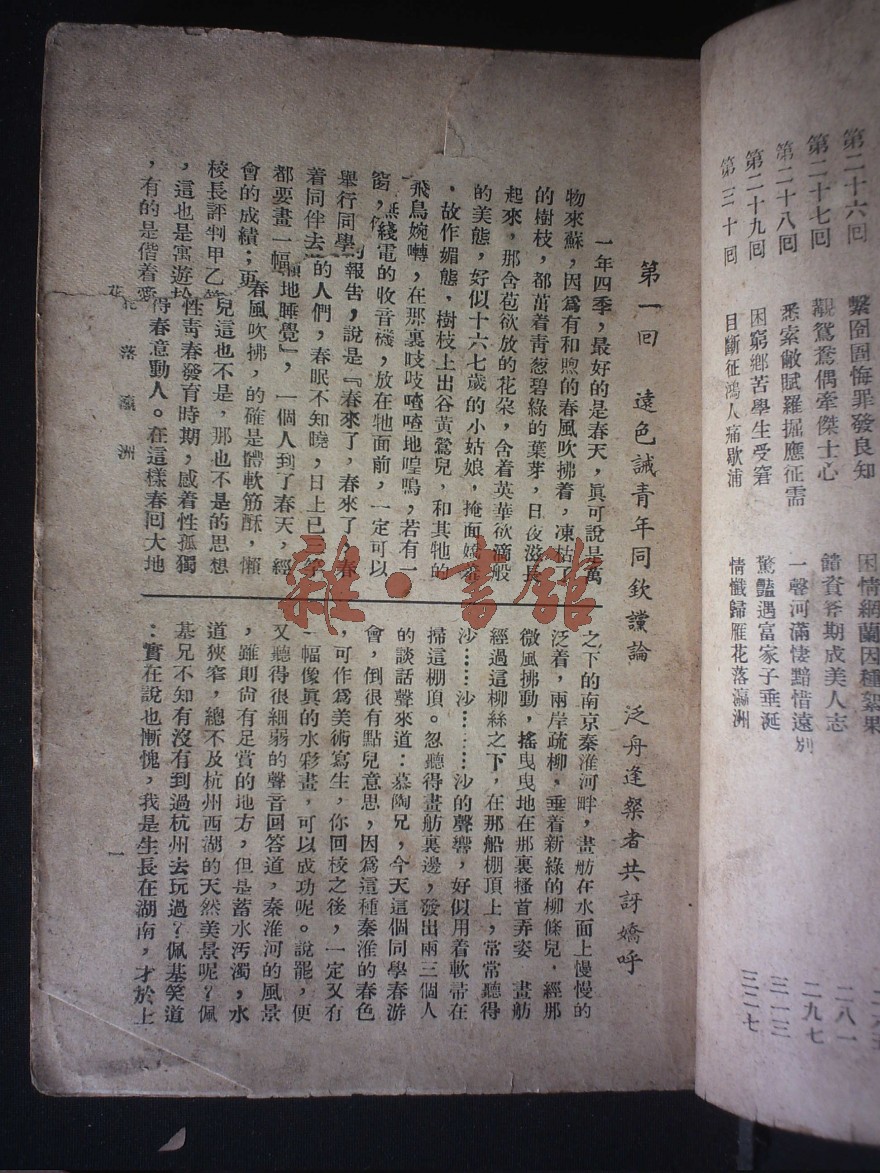 第二十六回　繫囹圄悔罪發良知　困情網蘭因種絮果
第二十七回　覩鴛鴦偶牽傑士心　成美人志　二八一
第二十八回　悉索敝賦羅掘應征需　一聲河滿悽黯惜遠別　二九七
第二十九回　困窮鄉苦學生受窘　驚豔遇富家子垂涎　三一三
第三十回　目斷征鴻人痛歇浦　情懺歸雁花落瀛洲　三二七
第一回　遠色誡青年同欽讜論　泛舟逢粲者共訝嬌呼
一年四季，最好的是春天，眞可說是萬
物來蘇，因爲有和煦的春風吹拂着，凍枯了
的樹枝，都茁着靑葱碧綠的葉芽，日夜滋長
起來，那含苞欲放的花朶，含着英華欲滴般
的美態，好似十六七歲的小姑娘，掩面嬌羞
，故作媚態，樹枝上出谷黃鶯兒，和其牠的
飛鳥婉囀，在那裏吱吱喳喳地喤鳴，若有一
窗，無綫電的收音機，放在牠面前，一定可以
舉行同學的報告，說是『春來了，春來了，春
着同伴去的人們，春眠不知曉，日上已三竿
都要畫一幅地睡覺』，一個人到了春天，經
會的成績；更春風吹拂，的確是體軟筋酥，懶
校長評判甲乙兒這也不是，那也不是的思想
，這也是寓遊於性靑春發育時期，感着性孤獨
，有的是偕着得春意動人。在這樣春回大地
之下的南京秦淮河畔，畫舫在水面上慢慢的
泛着，兩岸疏柳，垂着新綠的柳條兒，經那
微風拂動，搖曳曳地在那裏搔首弄姿　畫舫
經過這柳絲之下，在那船棚頂上，常常聽得
沙……沙……沙的聲響，好似用着軟帚在
掃這棚頂。忽聽得畫舫裏邊，發出兩三個人
的談話聲來道：慕陶兄，今天這個同學春游
會，倒很有點兒意思，因爲這種秦淮的春色
，可作爲美術寫生，你回校之後，一定又有
一幅像眞的水彩畫，可以成功呢。說罷，便
又聽得很細弱的聲音回答道，秦淮河的風景
，雖則尙有足賞的地方，但是蓄水汚濁，水
道狹窄，總不及杭州西湖的天然美景呢？佩
基兄不知有沒有到過杭州去玩過？佩基笑道
：實在說也慚愧，我是生長在湖南，才於上
花落瀛洲
一
雜·書館